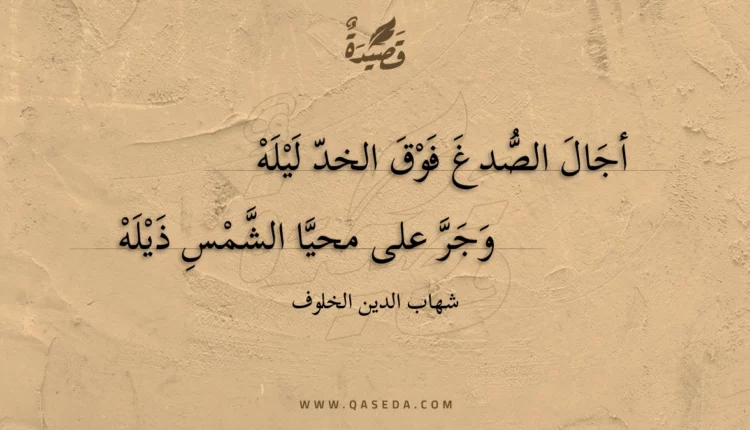 قَصِيْدَةٌ
أجَالَ الصُّدغَ فَوْقَ الخدّ لَيْلَهْ
وَجَرَّ على محيَّا الشَّمْسِ ذَيْلَهْ
شهاب الدين الخلوف
WWW.QASEDA.COM